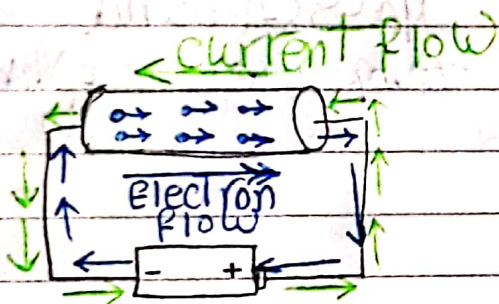 current flow
Electron
flow
- +